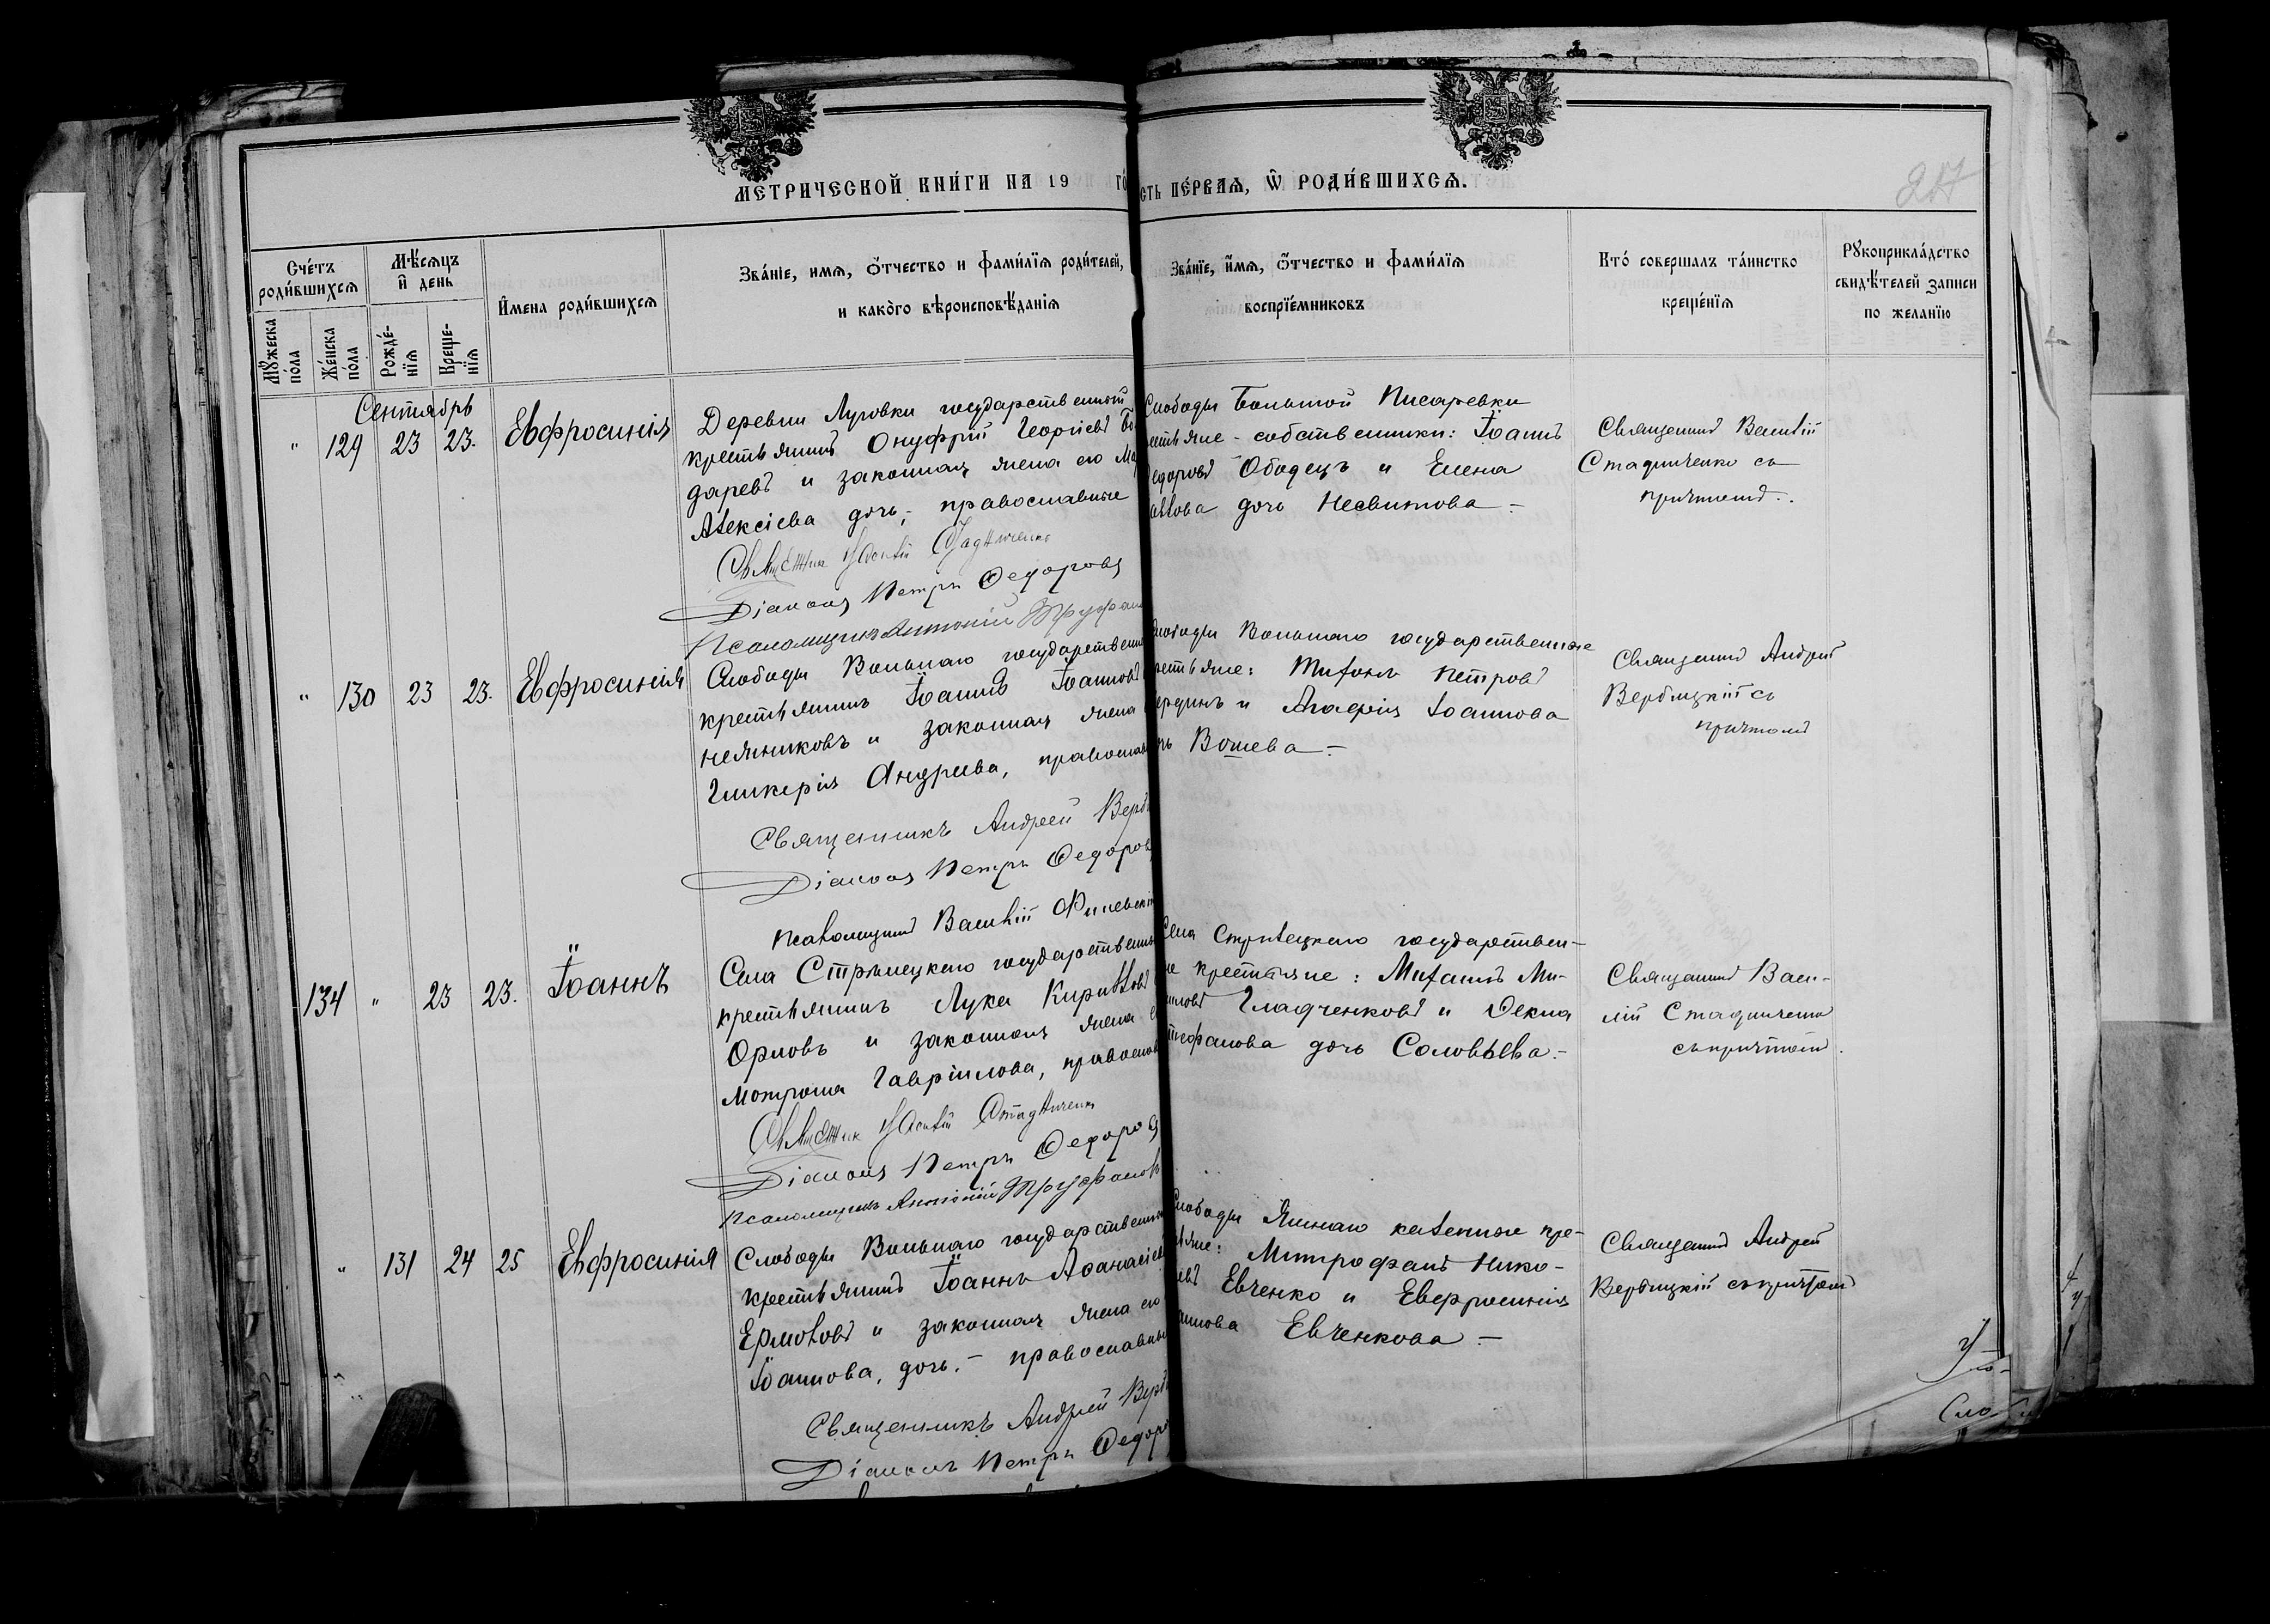 МЕТРИЧЕСКОЙ КНИ́ГИ НА 19 ГО
СТЬ ПЕ́РВАЯ, Ѡ РОДИ́ВШИХСЯ.
217
Сче́тъ роди́вшихся
Мꙋ́жеска по́ла
Же́нска по́ла
Мѣ́сяцъ и день
Рожде́-нїя
Креще-нїя
Имена роди́вшихся
Зва́нїе, имя, о́тчество и фами́лїя роди́телей,
и како́го вѣроисповѣ́данїя
Зва́нїе, и́мя, о́тчество и фами́лїя
воспрїе́мниковъ
Кто́ соверша́лъ та́инство
креще́нїя
Рꙋкоприкла́дство
свидѣ́телей записи
по желанїю
Сентябрь
" 129 23 23. Евфросинія
Деревни Луговки государственной
крестьянинъ Онуфрій Георгіевъ Бо
даревъ и законная жена его Ма
Алексіева дочь, - православные
Священникъ Василій Стадниченко
Діаконъ Петръ Федоровъ
Псаломщикъ Антоній Труфан
Слободы Большой Писаревки
естьяне - собственники: Іоаннъ
едоровъ Ободецъ и Елена
авлова дочь Несвитова -
Священникъ Василій
Стадниченко съ
причтомъ.
" 130 23 23. Евфросинія
Слободы Вольнаго государствен
крестьянинъ Іоаннъ Іоанновъ
нежниковъ и законная жена
Гликерія Андреева, православ
Священникъ Андрей Верб
Діаконъ Петръ Федоровъ
Псаломщикъ Василій
Слободы Вольнаго государственные
рестьяне: Тихонъ Петровъ
ердинъ и Агафія Іоаннова
чь Вошева -
Священникъ Андрей
Вербицкій съ
причтомъ
134 " 23 23. Іоаннъ
Села Стрѣлецкаго государственны
крестьянинъ Лука Кирилловъ
Орловъ и законная жена е
Мотрона Гавріилова, православ
Священникъ Василій Стадниченко
Діаконъ Петръ Федоровъ
Псаломщикъ Антоній Труфановъ
Села Стрѣлецкаго государствен-
е крестьяне: Михаилъ Ми-
иловъ Гладченковъ и Фекла
тефанова дочь Соловьева -
Священникъ Васи-
лій Стадниченко
съ причтомъ.
" 131 24 25 Евфросинія
Слободы Вольнаго государственны
крестьянинъ Іоаннъ Аѳанасіев
Ермоловъ и законная жена его
Іоаннова, дочь. - православны
Священникъ Андрей Верб
Діаконъ Петръ Федоро
Слободы Ямнаго казенные кре-
яне: Митрофанъ Нико-
евъ Евченко и Евфросинія
аннова Евченкова -
Священникъ Андрей
Вербицкій съ причтомъ